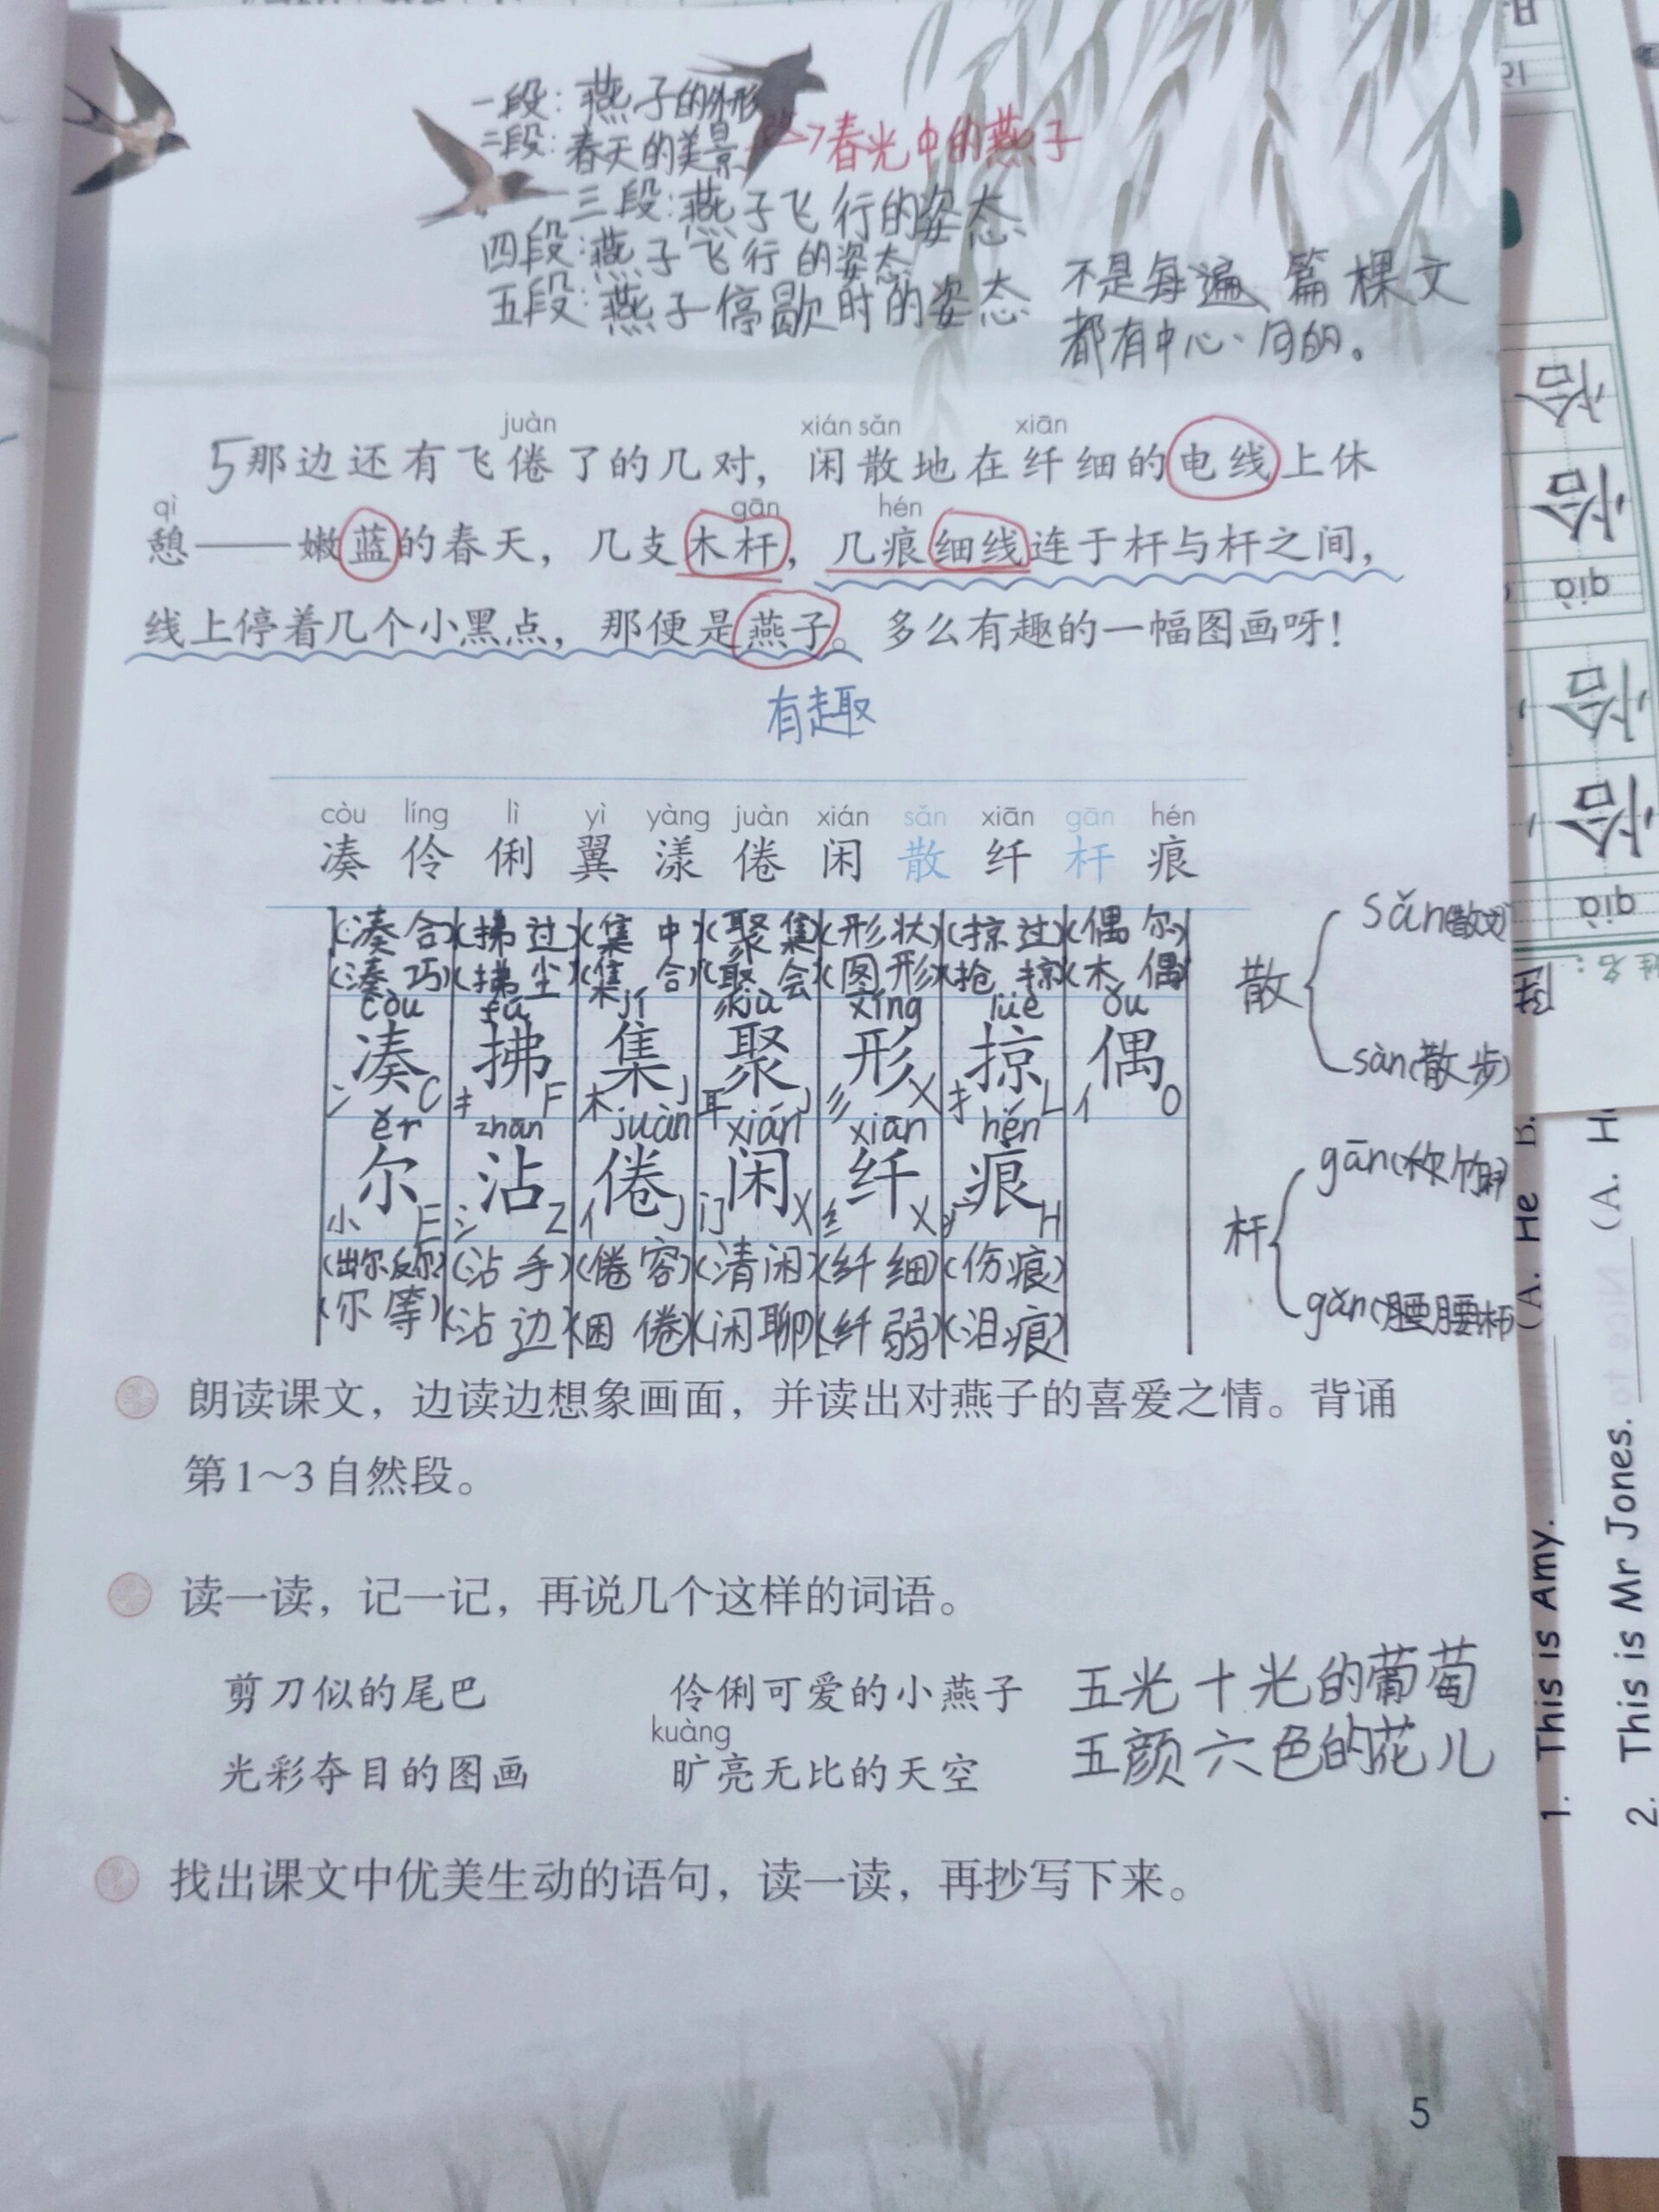 一段：燕子的外形
二段：春天的美景
→春光中的燕子
三段：燕子飞行的姿态
四段：燕子飞行的姿态
五段：燕子停歇时的姿态
不是每遍篇棵文
都有中心、句的。
juàn xián sǎn xiān
5那边还有飞倦了的几对，闲散地在纤细的电线上休
qì gān hén
憩——嫩蓝的春天，几支木杆，几痕细线连于杆与杆之间，
线上停着几个小黑点，那便是燕子。多么有趣的一幅图画呀！
有趣
còu líng lì yì yàng juàn xián sǎn xiān gān hén
凑 伶 俐 翼 漾 倦 闲 散 纤 杆 痕
(凑合)(拂过)(集中)(聚集)(形状)(掠过)(偶尔)
(凑巧)(拂尘)(集合)(聚会)(图形)(抢掠)(木偶)
còu fú jí jù xíng lüè ǒu
凑 拂 集 聚 形 掠 偶
冫 C 扌 F 木 J 耳 J 彡 X 扌 L 亻 O
ěr zhān juàn xián xiān hén
尔 沾 倦 闲 纤 痕
小 E 氵 Z 亻 J 门 X 纟 X 疒 H
(出尔反尔)(沾手)(倦容)(清闲)(纤细)(伤痕)
(尔等)(沾边)(困倦)(闲聊)(纤弱)(泪痕)
散
sǎn(散文)
sàn(散步)
杆
gān(
gǎn(
朗读课文，边读边想象画面，并读出对燕子的喜爱之情。背诵
第1～3自然段。
读一读，记一记，再说几个这样的词语。
剪刀似的尾巴 伶俐可爱的小燕子 五光十光的葡萄
kuàng
光彩夺目的图画 旷亮无比的天空 五颜六色的花儿
找出课文中优美生动的语句，读一读，再抄写下来。
5
恰
恰
qià
恰
恰
qià
姓名：
1. This is Amy. (A. He B.
2. This is Mr Jones. (A. H
Nice to